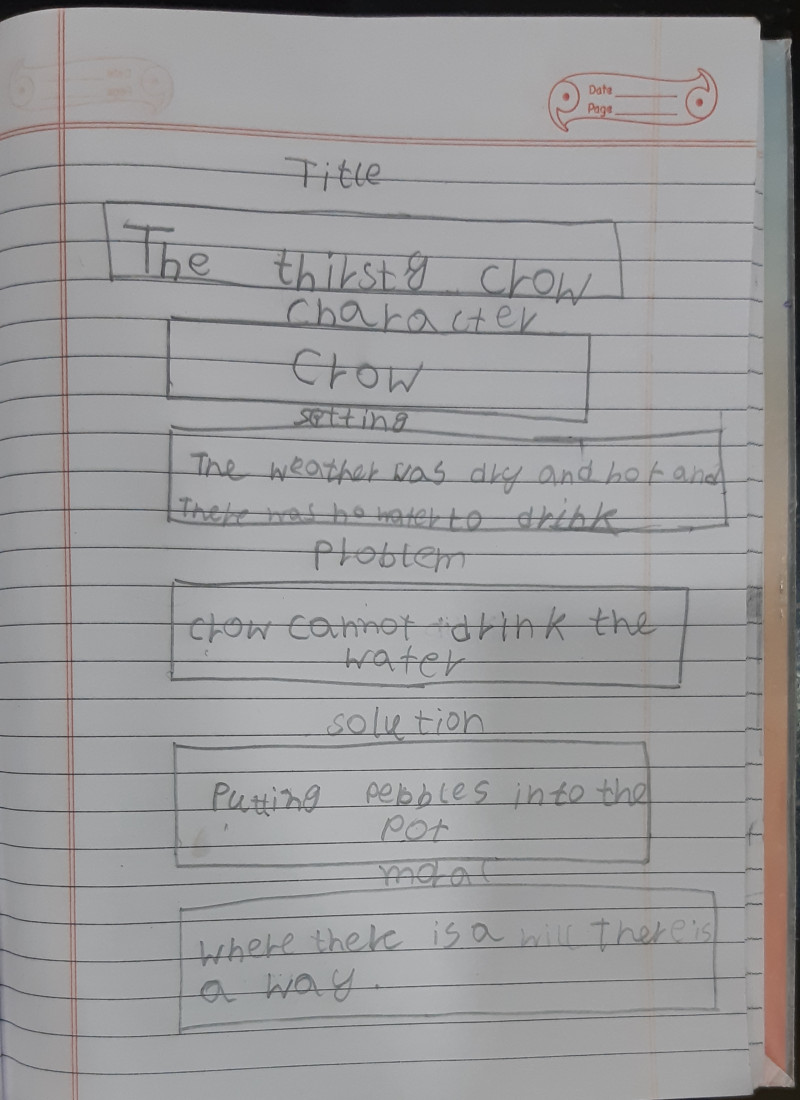 Date
Page
Title
The thirsty crow
character
Crow
setting
The weather was dry and hot and
There was no water to drink
Problem
crow cannot drink the
water
solution
Putting pebbles into the
pot
moral
where there is a will there is
a way.